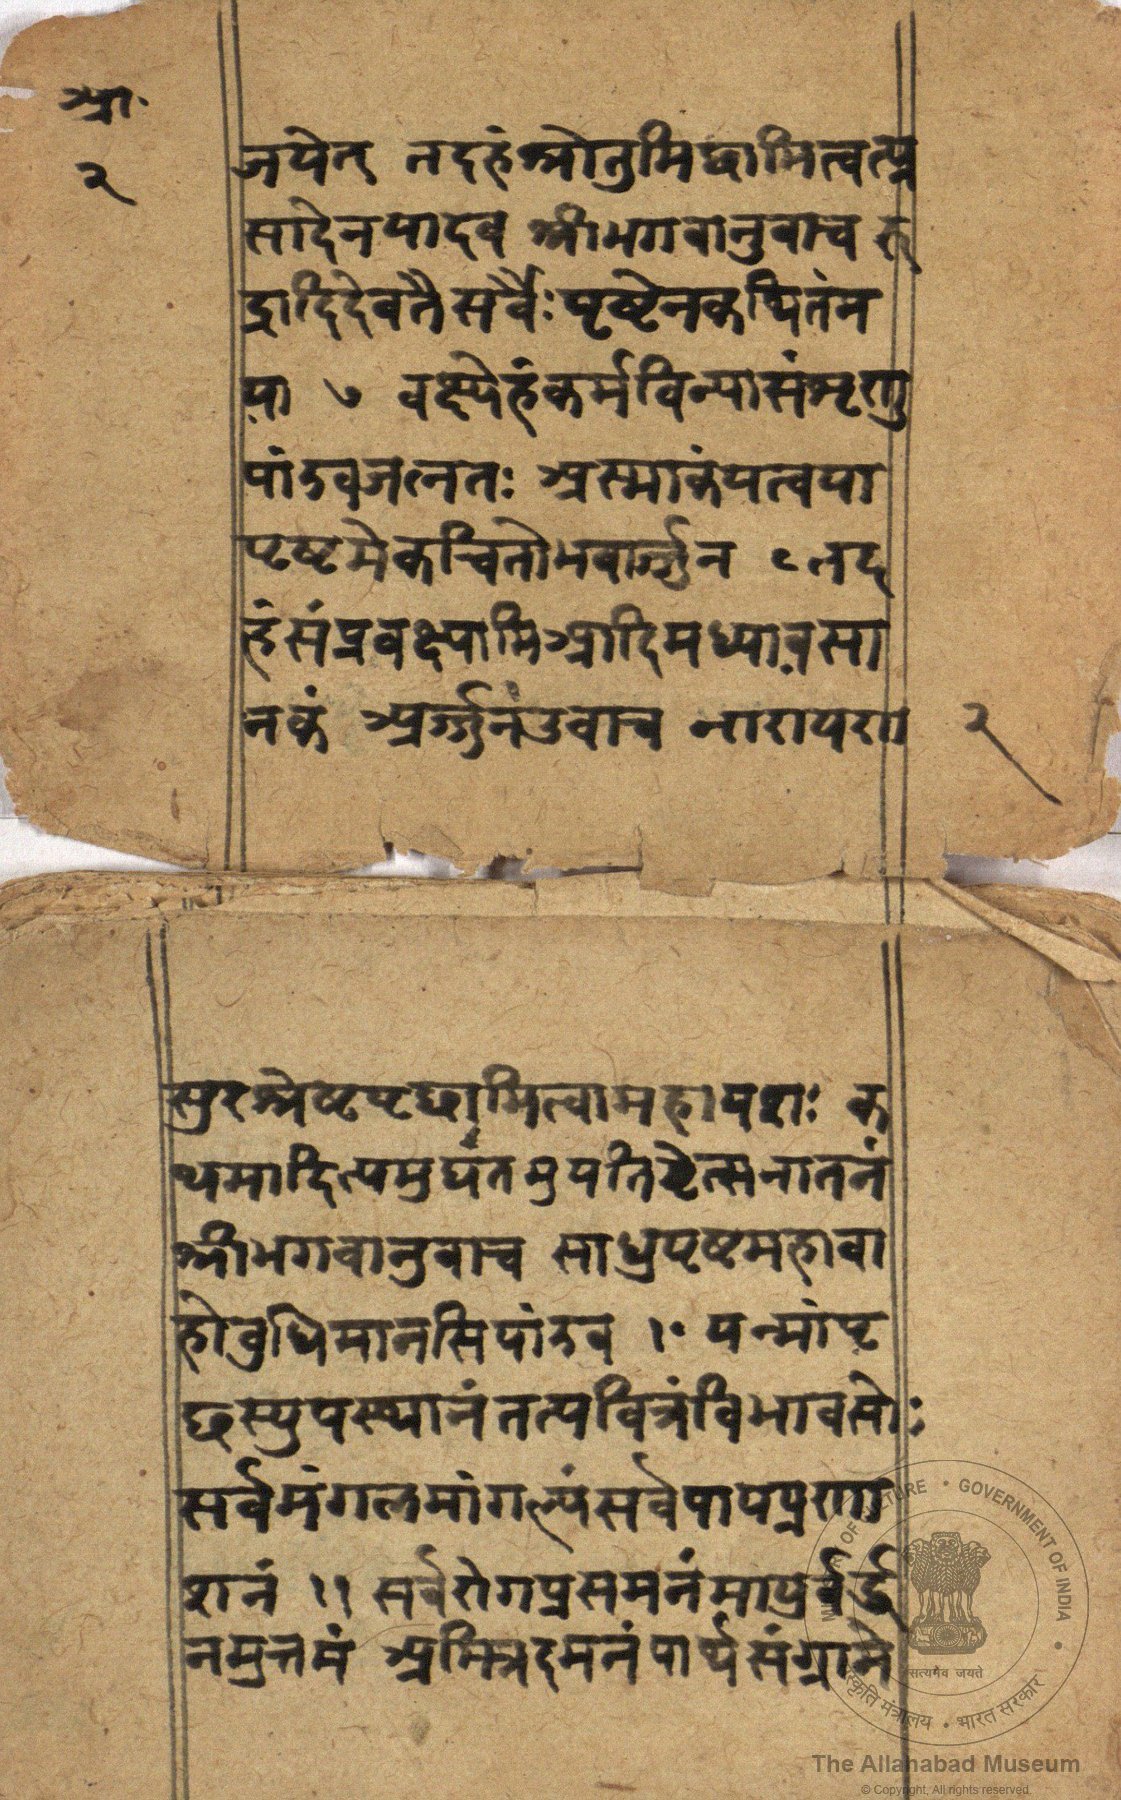 आ.
२
जयेत् तदहंश्रोतुमिछामित्वत्प्र
सादेनयादव श्रीभगवानुवाच रु
द्रादिदेवतैसर्वैःपृष्टेनकथितंम
या ७ वक्ष्येहंकर्मविन्यासंशृणु
पांडवजत्नतः अस्माकंयत्वया
पृष्टमेकचितोभवार्ज्जुन ८ तद
हंसंप्रवक्ष्यामिआदिमध्यावसा
नकं अर्ज्जुनंउवाच नारायण
२
सुरश्रेष्टपृछामित्वामहायशः क
थमादित्यमुद्यंतमुपतिष्टेत्सनातनं
श्रीभगवानुवाच साधुपृष्टमहाबा
होबुधिमानसिपांडव १० यन्मांपृ
छस्युपस्थानंतत्पवित्रंविभावसोः
सर्वमंगलमांगल्यंसर्वपापप्रणा
शनं ११ सर्वरोगप्रसमनंमायुर्वर्द्ध
नमुत्तमं अमित्रदमनंपार्थसंग्रामे
MINISTRY OF CULTURE • GOVERNMENT OF INDIA
सत्यमेव जयते
संस्कृति मंत्रालय • भारत सरकार
The Allahabad Museum
© Copyright, All rights reserved.